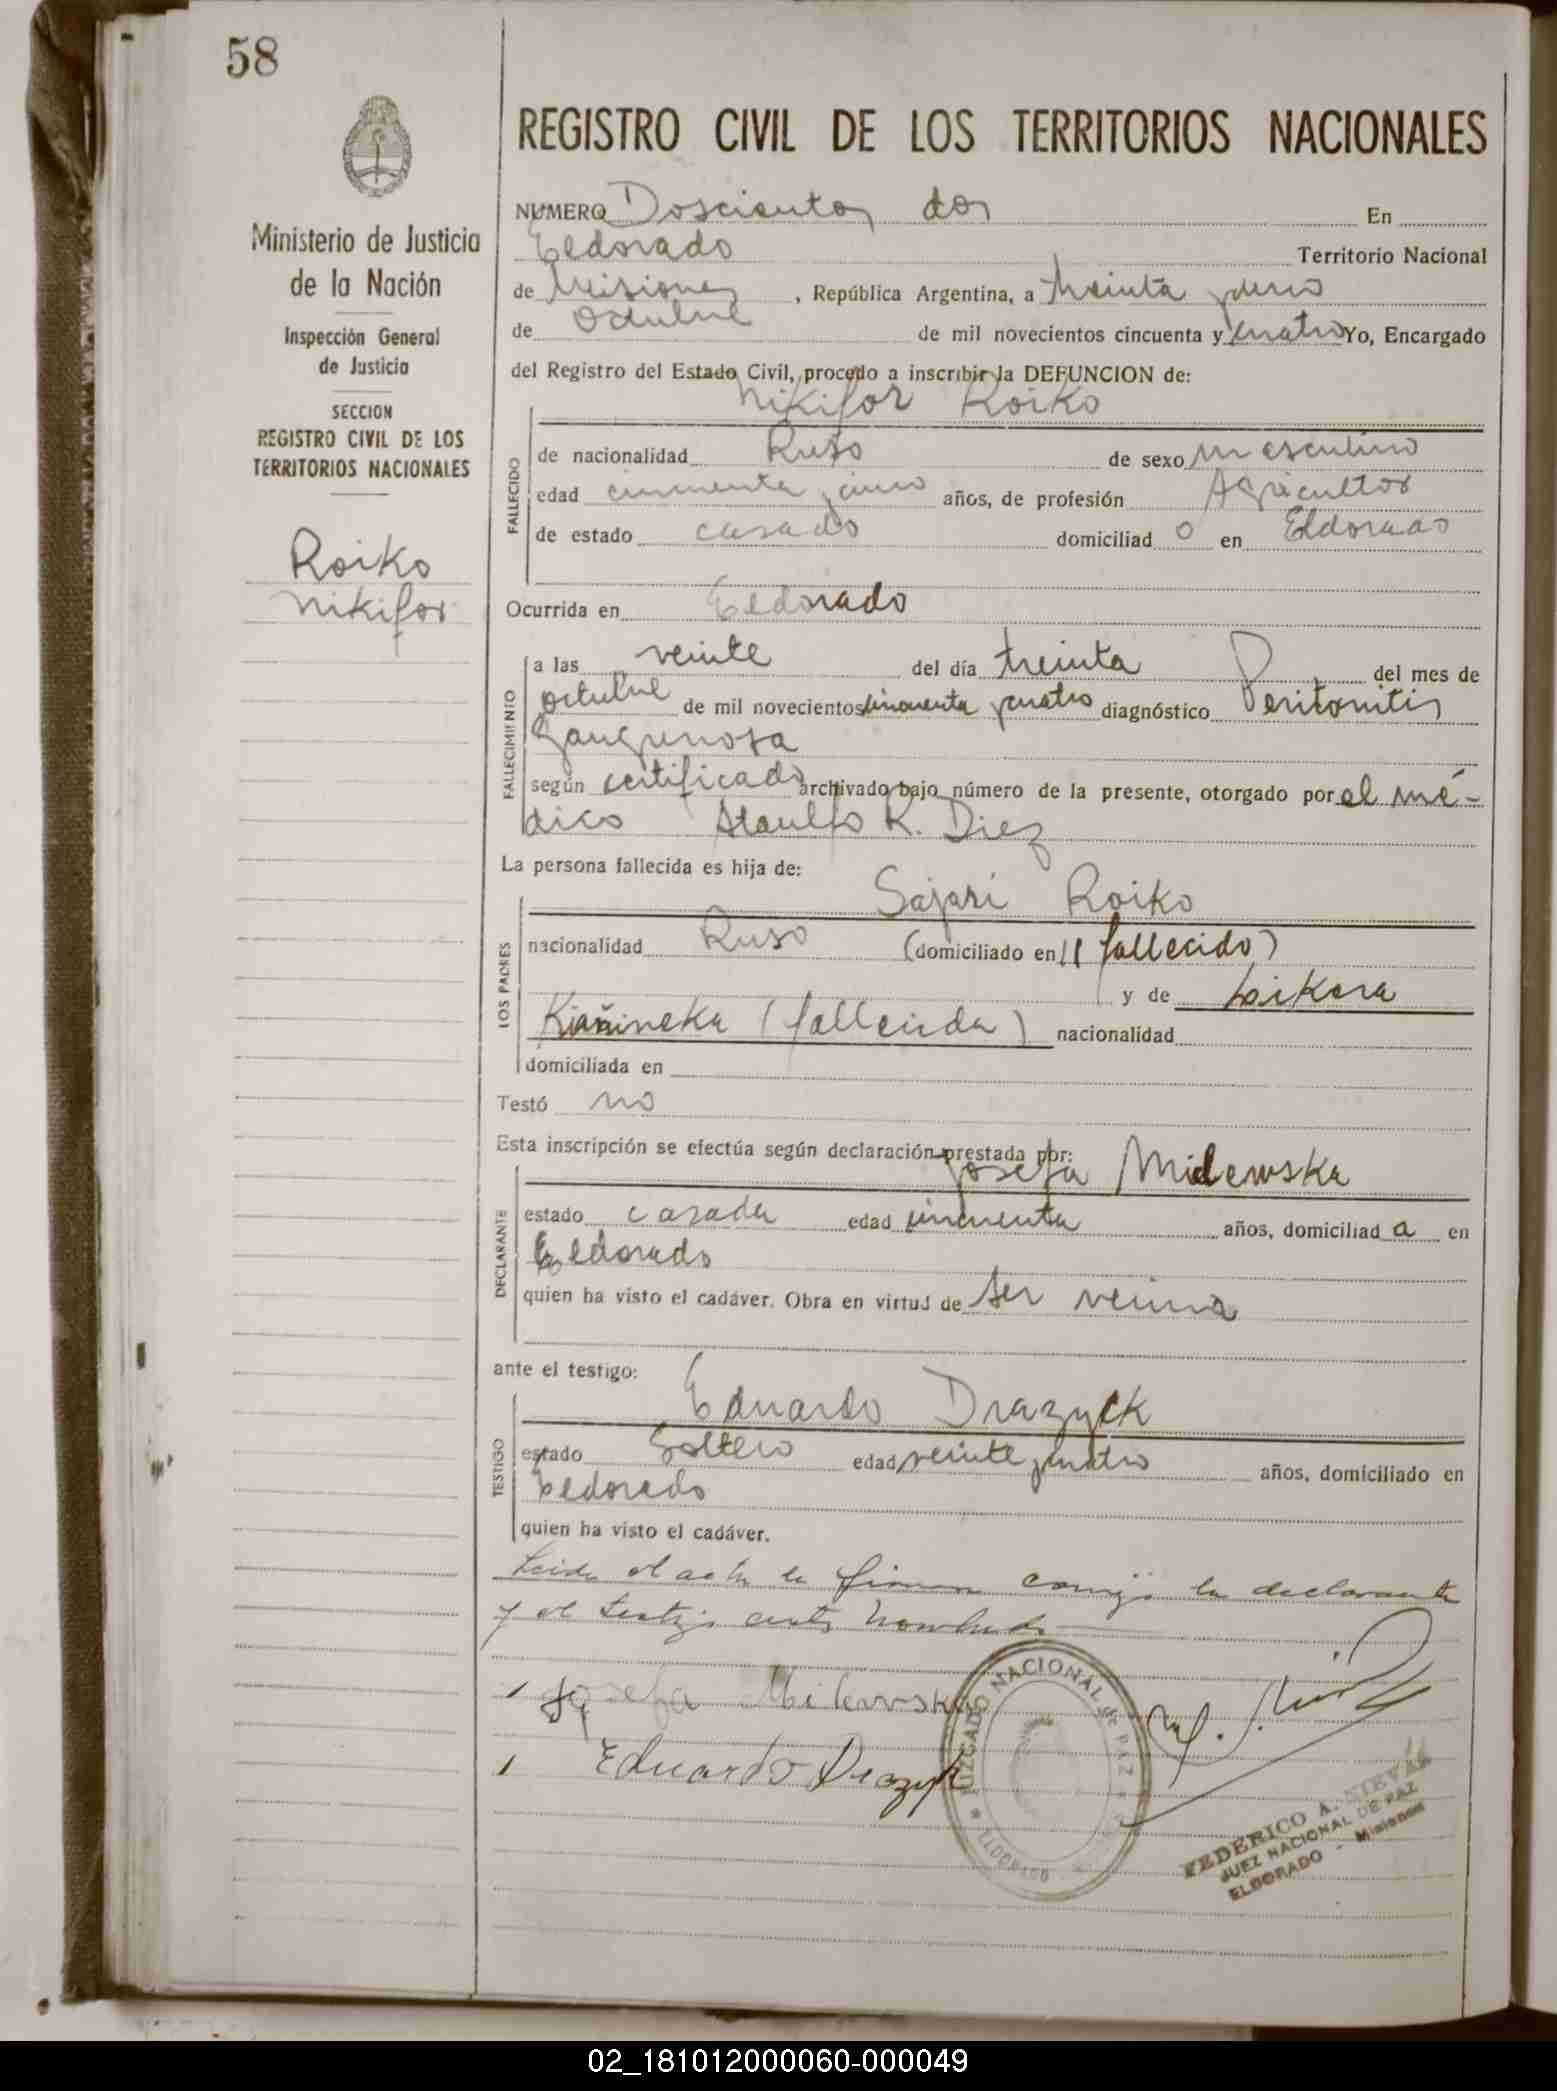 58
REGISTRO CIVIL DE LOS TERRITORIOS NACIONALES
Ministerio de Justicia
de la Nación
Inspección General
de Justicia
SECCION
REGISTRO CIVIL DE LOS
TERRITORIOS NACIONALES
Roiko
Nikifor
NUMERO Doscientos dos En
Eldorado Territorio Nacional
de Misiones, República Argentina, a treinta y uno
de Octubre de mil novecientos cincuenta y cuatro Yo, Encargado
del Registro del Estado Civil, procedo a inscribir la DEFUNCION de:
Nikifor Roiko
FALLECIDO
de nacionalidad Ruso de sexo masculino
edad cincuenta y cinco años, de profesión Agricultor
de estado casado domiciliad o en Eldorado
Ocurrida en Eldorado
FALLECIMIENTO
a las veinte del día treinta del mes de
octubre de mil novecientos cincuenta y cuatro diagnóstico Peritonitis
Gangrenosa
según certificado archivado bajo número de la presente, otorgado por el mé-
dico Ataulfo R. Diez
La persona fallecida es hija de:
Sajari Roiko
LOS PADRES
nacionalidad Ruso (domiciliado en (fallecido)
y de
(fallecida) nacionalidad
domiciliada en
Testó no
Esta inscripción se efectúa según declaración prestada por:
Josefa Milewska
DECLARANTE
estado casada edad cincuenta años, domiciliad a en
Eldorado
quien ha visto el cadáver. Obra en virtud de ser vecina
ante el testigo:
Eduardo Drazyck
TESTIGO
estado Soltero edad veinte y cuatro años, domiciliado en
Eldorado
quien ha visto el cadáver.
Leida el acta la firman conmigo la declarante
y el testigo antes nombrado
Josefa Milewska
Eduardo Drazyk
JUZGADO NACIONAL de PAZ
ELDORADO
FEDERICO A. NIEVAS
JUEZ NACIONAL DE PAZ
ELDORADO - Misiones
02_181012000060-000049